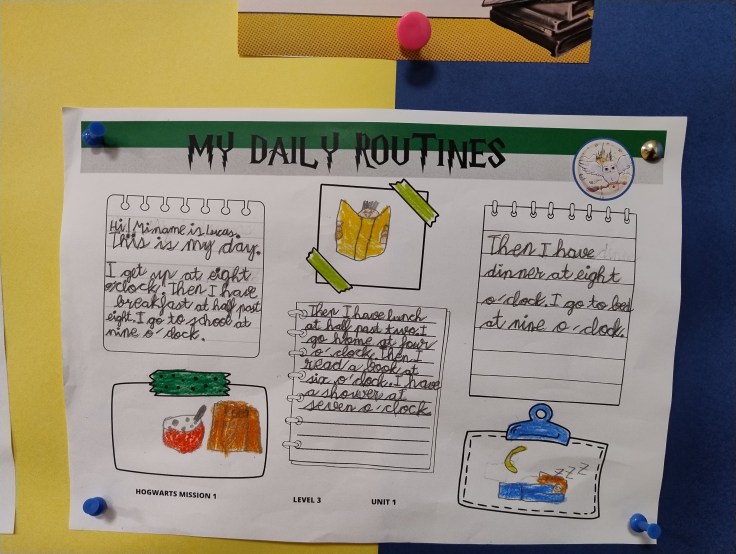 MY DAILY ROUTINES
Hi! Mi name is Lucas.
This is my day.
I get up at eight
o'clock. Then I have
breakfast at half past
eight. I go to school at
nine o'clock.
Then I have lunch
at half past two. I
go home at four
o'clock. Then I
read a book at
six o'clock. I have
a shower at
seven o'clock
Then I have
dinner at eight
o'clock. I go to bed
at nine o'clock.
zzz
HOGWARTS MISSION 1
LEVEL 3
UNIT 1